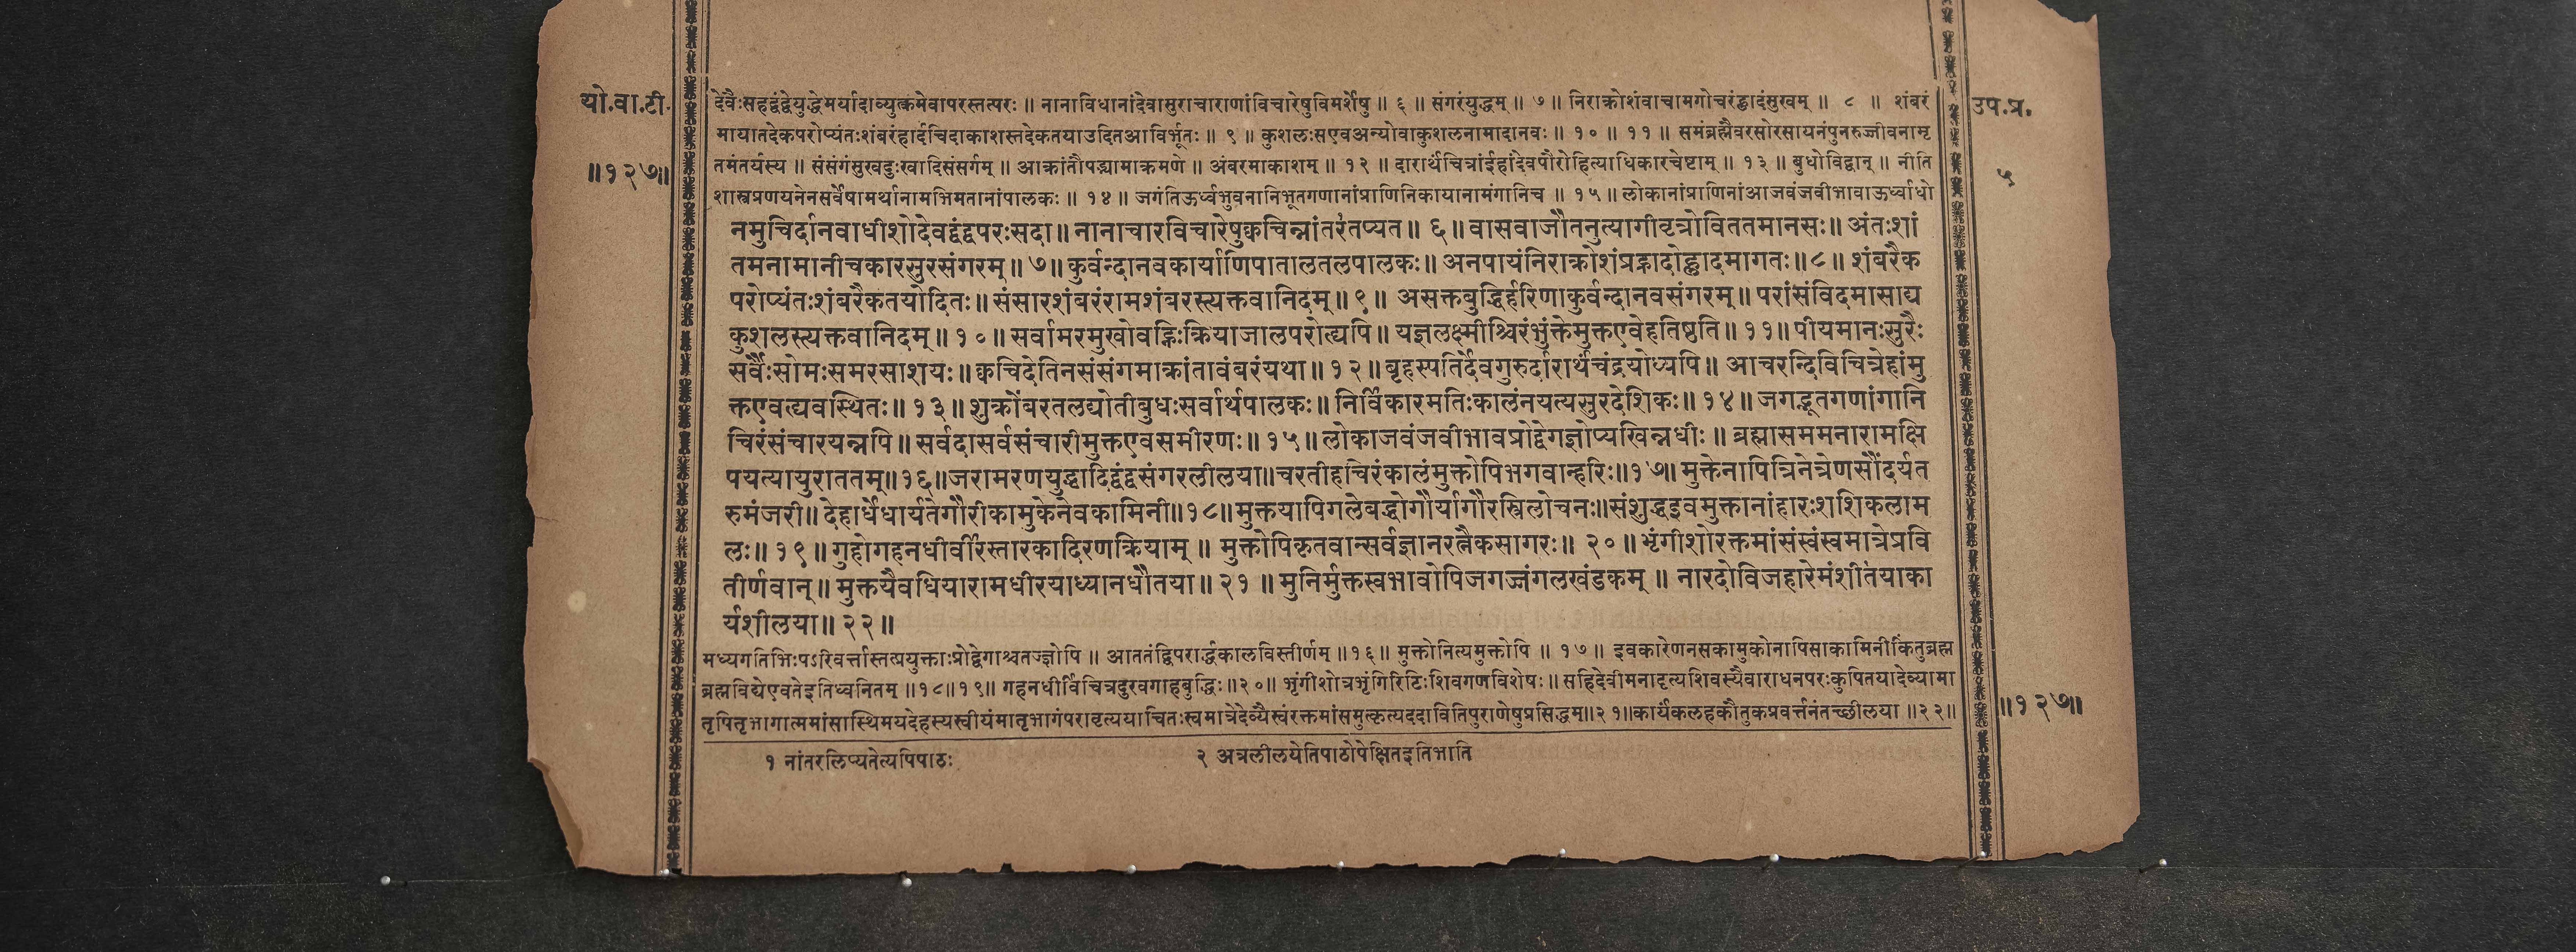 यो.वा.टी.
॥१२७॥
उप.प्र.
५
देवैःसहद्वंद्वेयुद्धेमर्यादाव्युत्क्रमेवापरस्तत्परः ॥ नानाविधानांदेवासुराचाराणांविचारेषुविमर्शेषु ॥ ६ ॥ संगरंयुद्धम् ॥ ७ ॥ निराक्रोशंवाचामगोचरंह्लादंसुखम् ॥ ८ ॥ शंबरं
मायातदेकपरोप्यंतःशंबरंहार्दचिदाकाशस्तदेकतयाउदितआविर्भूतः ॥ ९ ॥ कुशलःसएवअन्योवाकुशलनामादानवः ॥ १० ॥ ११ ॥ समंब्रह्मैवरसोरसायनंपुनरुज्जीवनामृ
तमंतर्यस्य ॥ संसंगंसुखदुःखादिसंसर्गम् ॥ आक्रांतौपद्भ्यामाक्रमणे ॥ अंबरमाकाशम् ॥ १२ ॥ दारार्थचित्रांईहांदेवपौरोहित्याधिकारचेष्टाम् ॥ १३ ॥ बुधोविद्वान् ॥ नीति
शास्त्रप्रणयनेनसर्वेषामर्थानामभिमतानांपालकः ॥ १४ ॥ जगंतिऊर्ध्वभुवनानिभूतगणानांप्राणिनिकायानामंगानिच ॥ १५ ॥ लोकानांप्राणिनांआजवंजवीभावाऊर्ध्वाधो
नमुचिर्दानवाधीशोदेवद्वंद्वपरःसदा॥ नानाचारविचारेषुक्वचिन्नांतरंतप्यत॥ ६॥ वासवाजौतनुत्यागीवृत्रोविततमानसः॥ अंतःशां
तमनामानीचकारसुरसंगरम्॥ ७॥ कुर्वन्दानवकार्याणिपातालतलपालकः॥ अनपायंनिराक्रोशंप्रह्लादोह्लादमागतः॥ ८॥ शंबरैक
परोप्यंतःशंबरैकतयोदितः॥ संसारशंबरंरामशंबरस्त्यक्तवानिदम्॥ ९॥ असक्तबुद्धिर्हरिणाकुर्वन्दानवसंगरम्॥ परांसंविदमासाद्य
कुशलस्त्यक्तवानिदम्॥ १०॥ सर्वामरमुखोवह्निःक्रियाजालपरोत्द्यपि॥ यज्ञलक्ष्मीश्चिरंभुंक्तेमुक्तएवेहतिष्ठति॥ ११॥ पीयमानःसुरैः
सर्वैःसोमःसमरसाशयः॥ क्वचिदेतिनसंसंगमाक्रांतावंबरंयथा॥ १२॥ बृहस्पतिर्देवगुरुर्दारार्थचंद्रयोध्यपि॥ आचरन्दिविचित्रेहांमु
क्तएवत्द्यवस्थितः॥ १३॥ शुक्रोंबरतलद्योतीबुधःसर्वार्थपालकः॥ निर्विकारमतिःकालंनयत्यसुरदेशिकः॥ १४॥ जगद्भूतगणांगानि
चिरंसंचारयन्नपि॥ सर्वदासर्वसंचारीमुक्तएवसमीरणः॥ १५॥ लोकाजवंजवीभावप्रोद्वेगज्ञोप्यखिन्नधीः॥ ब्रह्मासममनारामक्षि
पयत्यायुराततम्॥१६॥जरामरणयुद्धादिद्वंद्वसंगरलीलया॥चरतीहचिरंकालंमुक्तोपिभगवान्हरिः॥१७॥ मुक्तेनापित्रिनेत्रेणसौंदर्यत
रुमंजरी॥ देहार्धेधार्यतेगौरीकामुकेनेवकामिनी॥१८॥मुक्तयापिगलेबद्धोगौर्यागौरस्त्रिलोचनः॥संशुद्धइवमुक्तानांहारःशशिकलाम
लः॥ १९॥ गुहोगहनधीर्वीरस्तारकादिरणक्रियाम्॥ मुक्तोपिकृतवान्सर्वज्ञानरत्नैकसागरः॥ २०॥ भृंगीशोरक्तमांसंस्वंस्वमात्रेप्रवि
तीर्णवान्॥ मुक्तयैवधियारामधीरयाध्यानधौतया॥ २१॥ मुनिर्मुक्तस्वभावोपिजगज्जंगलखंडकम्॥ नारदोविजहारेमंशीतयाका
र्यशीलया॥ २२॥
मध्यगतिभिःपऽरिवर्त्तास्तत्प्रयुक्ताःप्रोद्वेगाश्चतज्ज्ञोपि ॥ आततंद्विपरार्द्धकालविस्तीर्णम् ॥१६॥ मुक्तोनित्यमुक्तोपि ॥ १७॥ इवकारेणनसकामुकोनापिसाकामिनीकिंतुब्रह्म
ब्रह्मविद्येएवतेइतिध्वनितम् ॥१८॥१९॥ गहनधीर्विचित्रदुरवगाहबुद्धिः॥२०॥ भृंगीशोत्रभृंगिरिटिःशिवगणविशेषः॥ सहिदेवीमनादृत्यशिवस्यैवाराधनपरःकुपितयादेव्यामा
तृपितृभागात्ममांसास्थिमयदेहस्यस्वीयंमातृभागंपरावृत्ययाचितःस्वमात्रेदेव्यैस्वंरक्तमांसमुत्कृत्यददावितिपुराणेषुप्रसिद्धम्॥२१॥कार्यंकलहकौतुकप्रवर्त्तनंतच्छीलया ॥२२॥
॥१२७॥
१ नांतरलिप्यतेत्यपिपाठः २ अत्रलीलयेतिपाठोपेक्षितइतिभाति